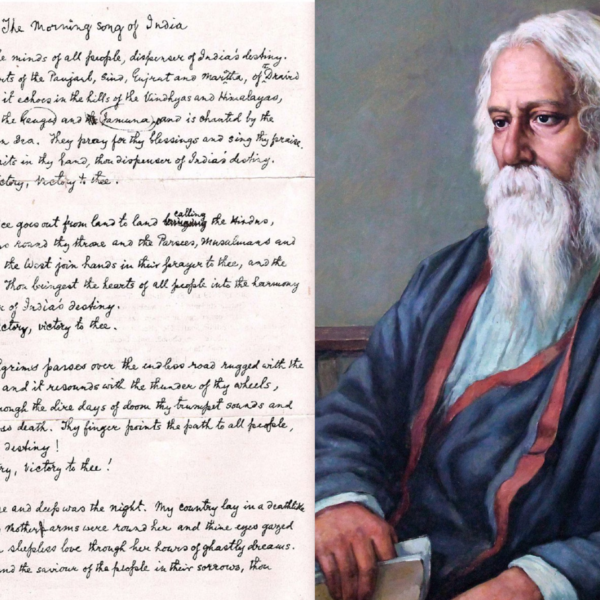 The Morning Song of India
minds of all people, dispenser of India's destiny.
of the Punjab, Sind, Gujrat and Maratta, of Dravid
it echoes in the hills of the Vindhyas and Himalayas,
the Ganges and Jamuna, and is chanted by the
They pray for thy blessings and sing thy praise.
in thy hand, thou dispenser of India's destiny.
Victory to thee.
goes out from land to land calling the Hindus,
round thy throne and the Parsees, Musulmans and
the West join hands in their prayer to thee, and the
Thou bringest the hearts of all people into the harmony
of India's destiny.
victory to thee.
passes over the endless road rugged with the
and it resounds with the thunder of thy wheels,
the dire days of doom thy trumpet sounds and
death. Thy finger points the path to all people,
destiny!
victory to thee!
and deep was the night. My country lay in a deathlike
arms were round her and thine eyes gazed
sleepless love through her hours of ghastly dreams.
the saviour of the people in their sorrows, thou